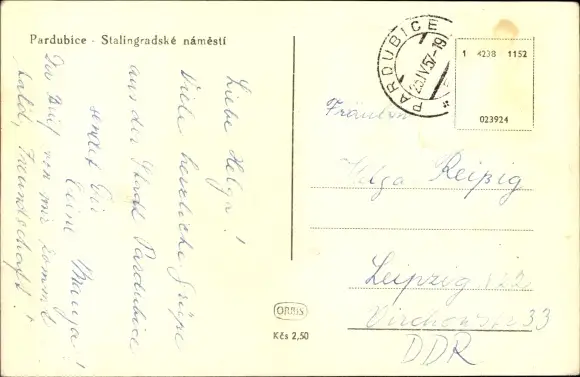 Pardubice - Stalingradské náměstí
Liebe Helga!
Viele herzliche Grüße
aus der Stadt Pardubice
sendet Dir
Deine Maryja!
Der Brief von mir kommt
bald, Freundschaft!
PARDUBICE
-19
1 4238 1152
023924
Fräulein
Helga Reipsig
Leipzig N22
Virchowstr 33
DDR
ORBIS
Kčs 2,50